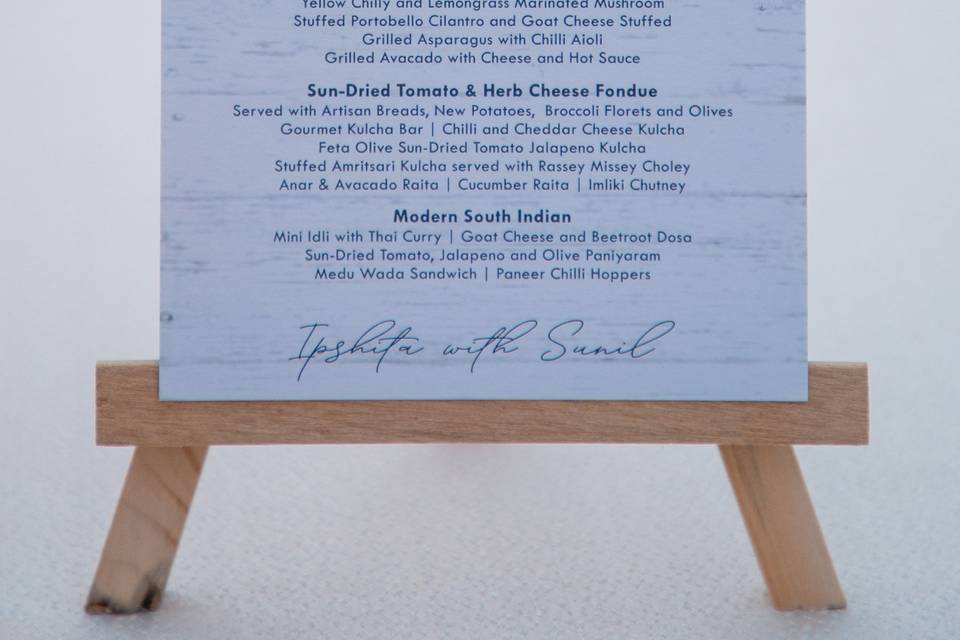 Yellow Chilly and Lemongrass Marinated Mushroom
Stuffed Portobello Cilantro and Goat Cheese Stuffed
Grilled Asparagus with Chilli Aioli
Grilled Avacado with Cheese and Hot Sauce
Sun-Dried Tomato & Herb Cheese Fondue
Served with Artisan Breads, New Potatoes, Broccoli Florets and Olives
Gourmet Kulcha Bar | Chilli and Cheddar Cheese Kulcha
Feta Olive Sun-Dried Tomato Jalapeno Kulcha
Stuffed Amritsari Kulcha served with Rassey Missey Choley
Anar & Avacado Raita | Cucumber Raita | Imliki Chutney
Modern South Indian
Mini Idli with Thai Curry | Goat Cheese and Beetroot Dosa
Sun-Dried Tomato, Jalapeno and Olive Paniyaram
Medu Wada Sandwich | Paneer Chilli Hoppers
Ipshita with Sunil